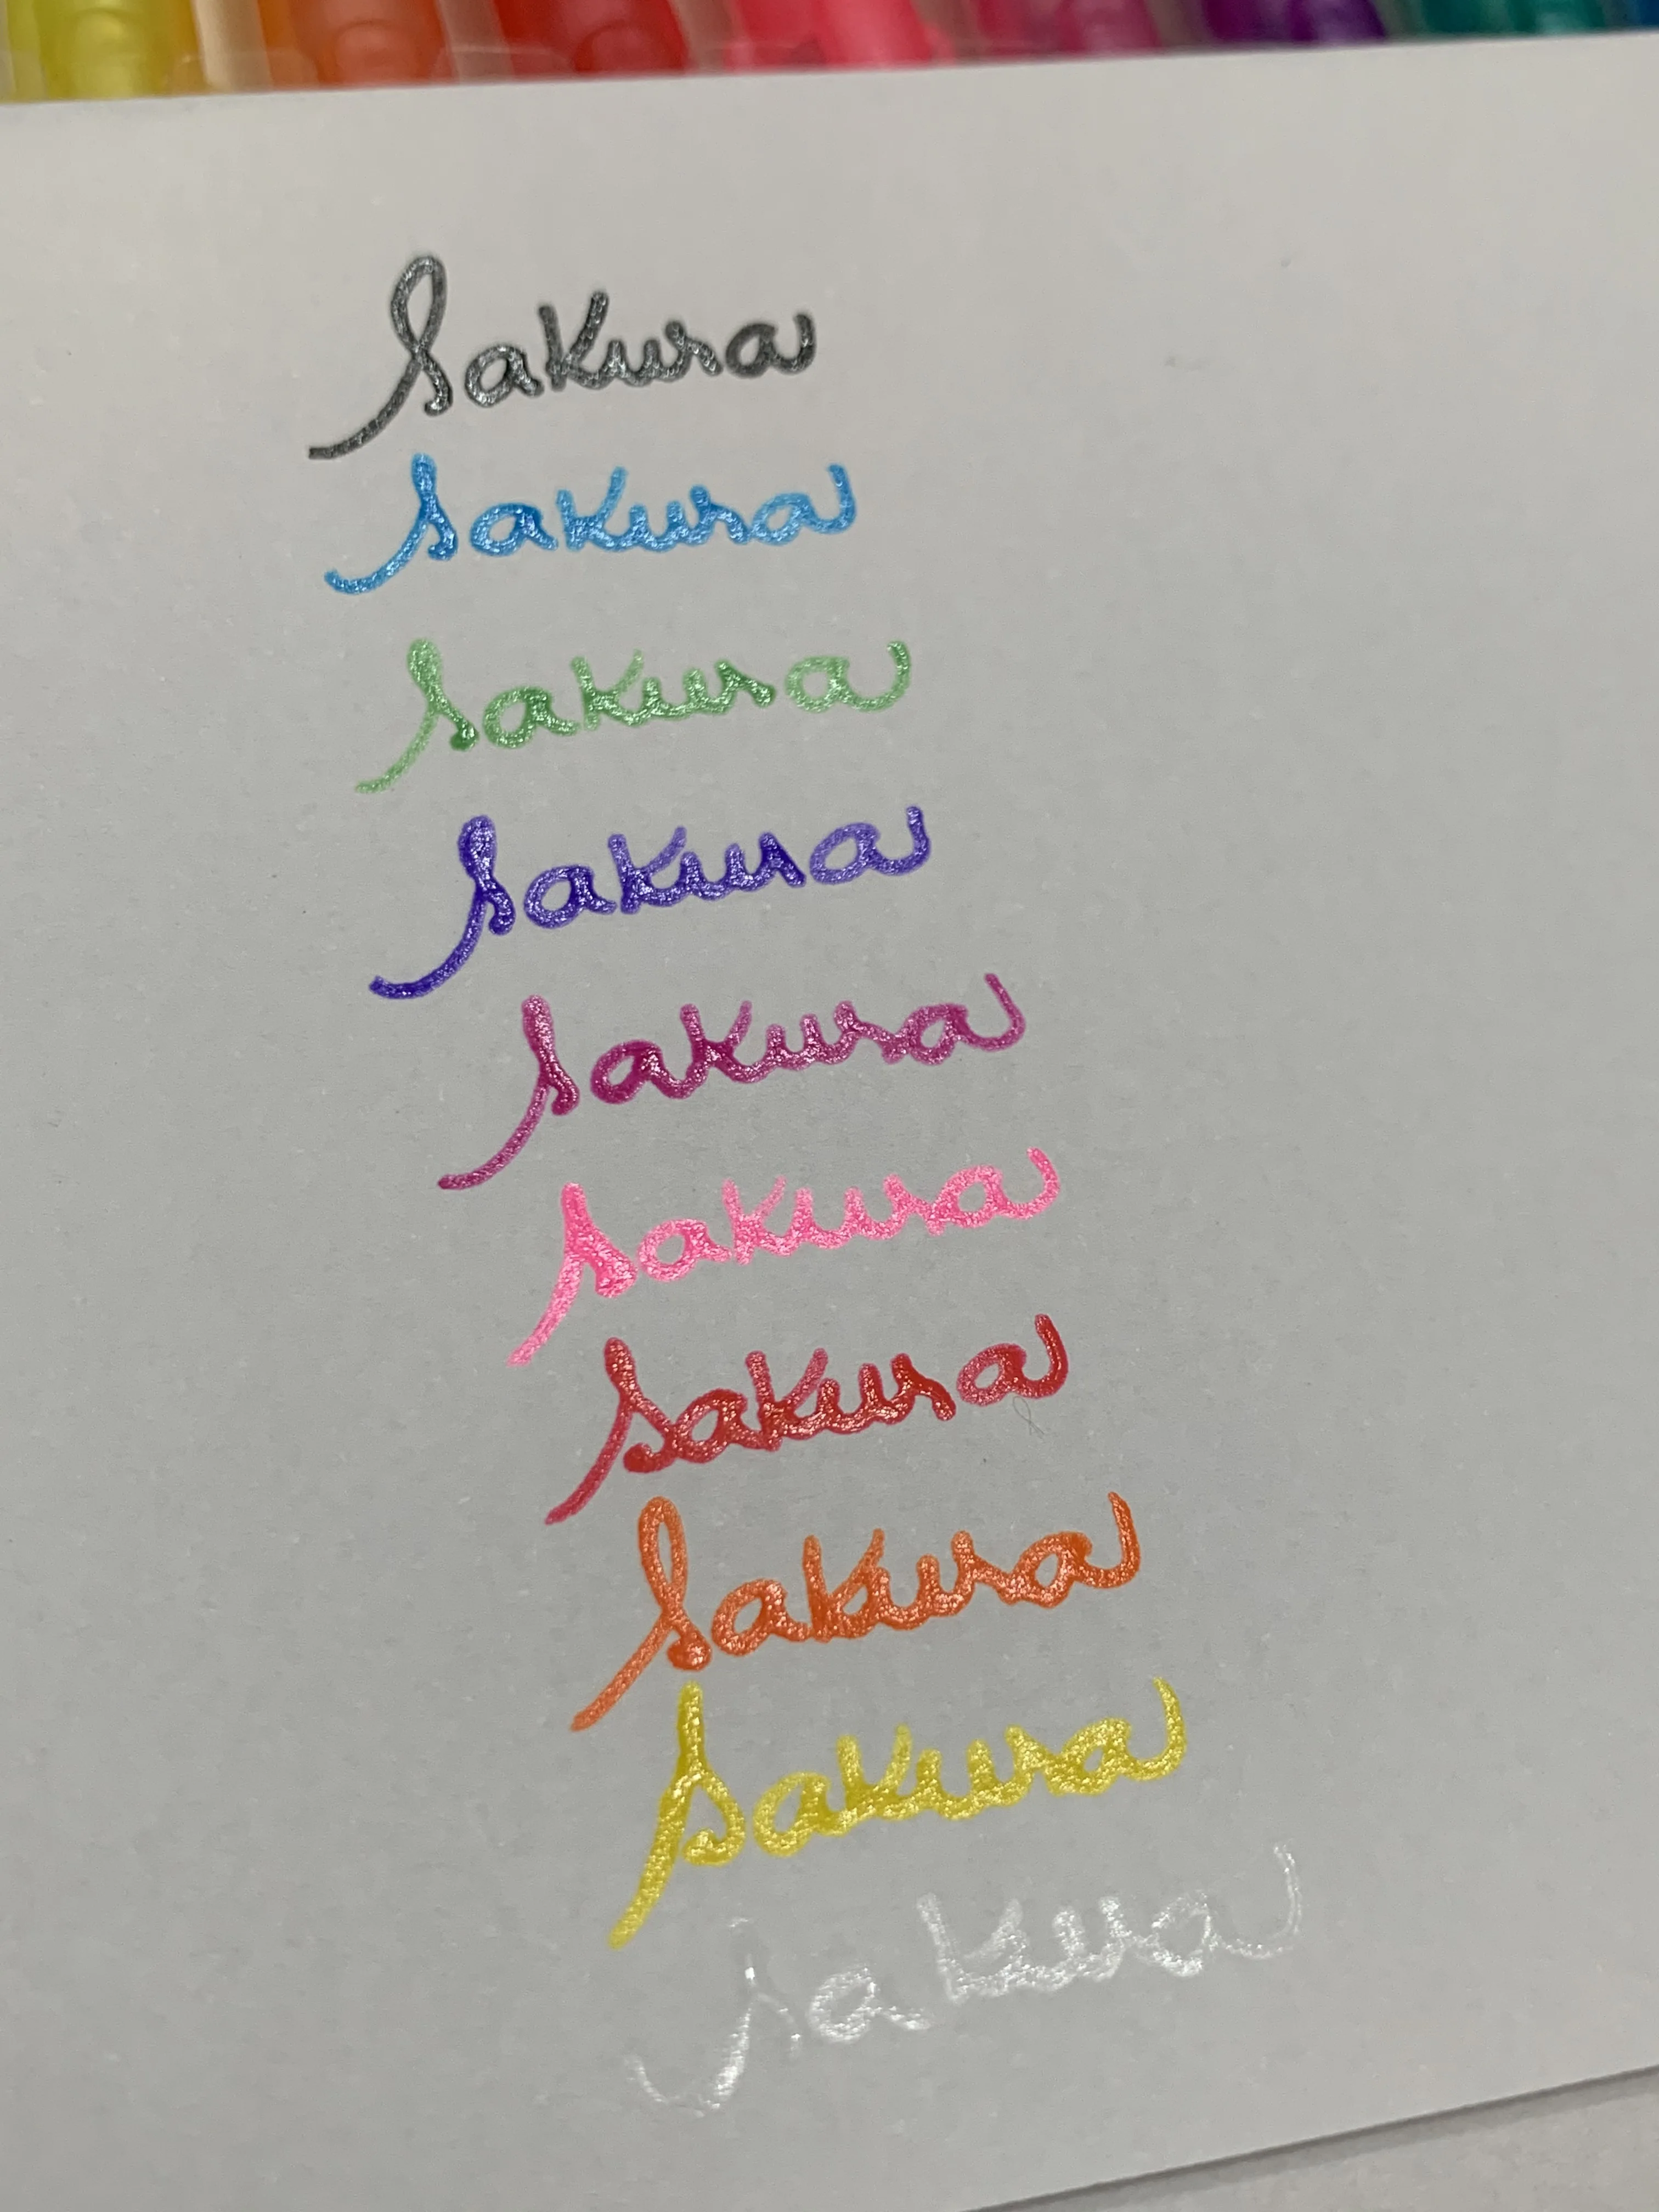 Sakura
Sakura
Sakura
Sakura
Sakura
Sakura
Sakura
Sakura
Sakura
Sakura